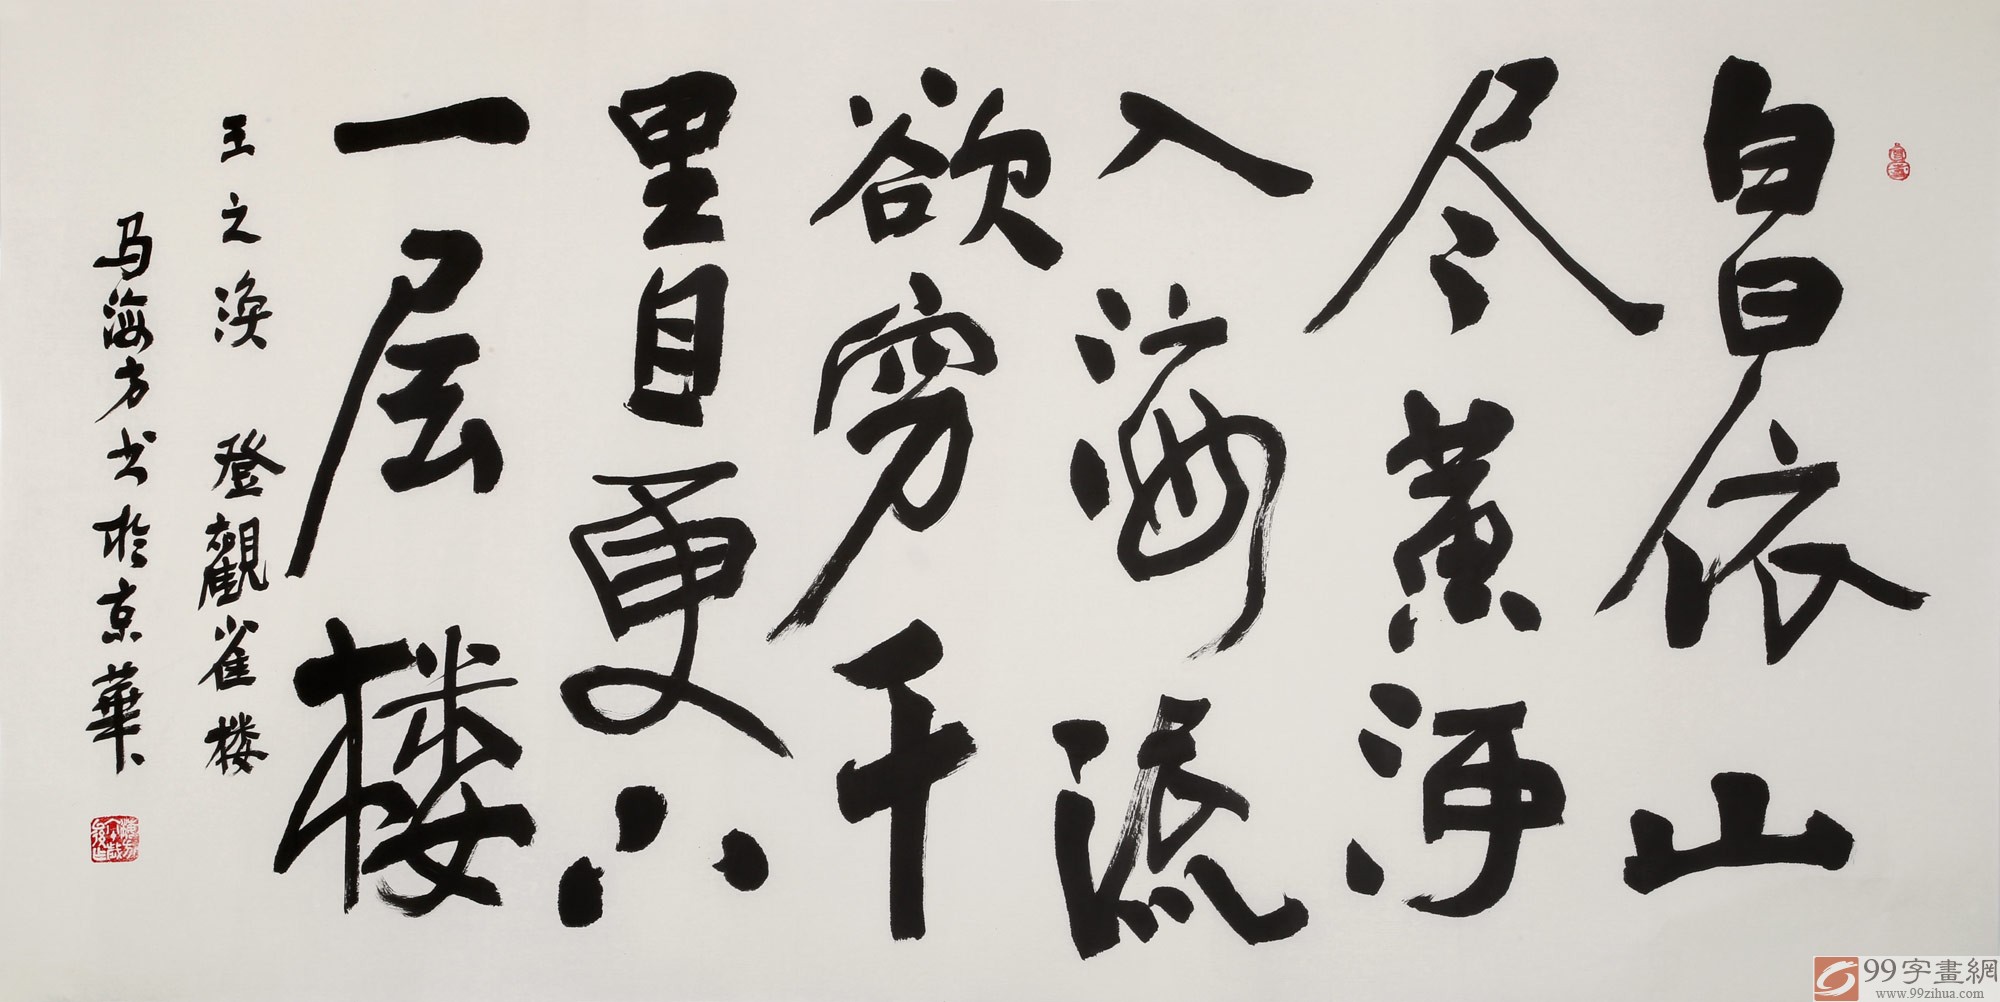 白日依山
尽黄河
入海流
欲穷千
里目更上
一层楼
王之涣 登觀雀楼
马海方书於京華
99字畫網
www.99zihua.com